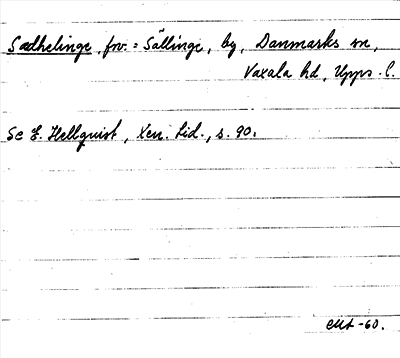 Sædhelinge, fvv. = Sällinge, by, Danmarks sn,
Vaxala hd, Upps. l.
Se E. Hellquist, Xen. Lid., s. 90.
-60.